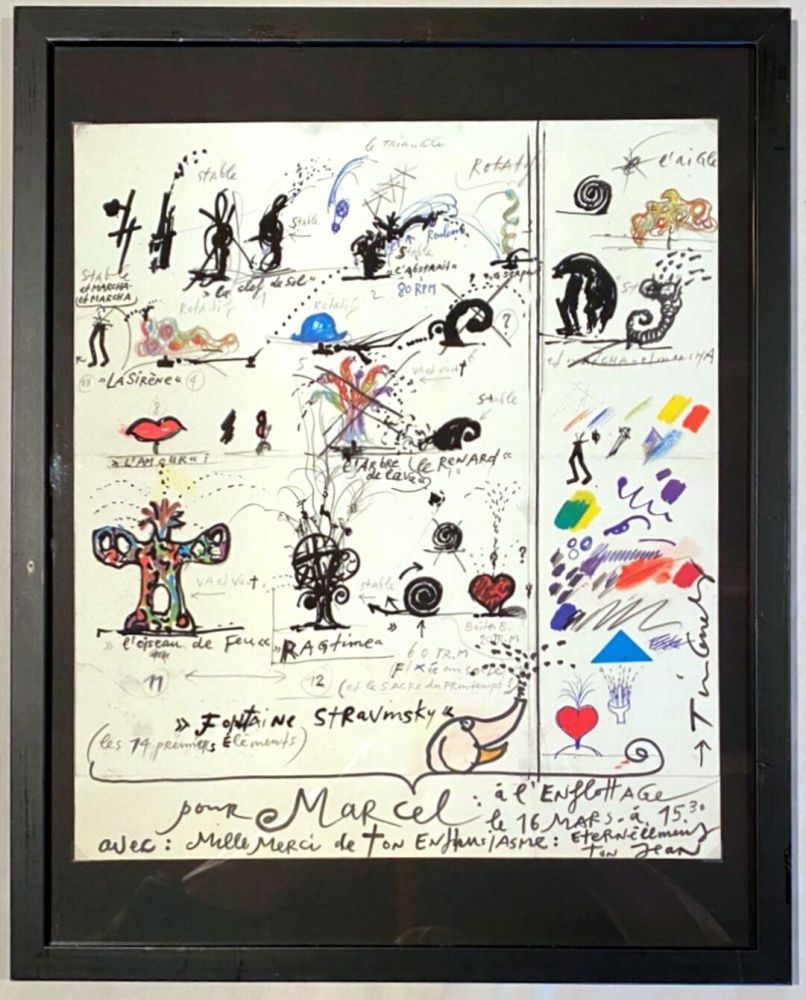 le TRIANGLE
Stable
ROTATIF
l'aigle
Stable
Rouleau
Stable
"l'Abstrait"
80 RPM
"la clef de Sol"
1
2
?
Stable
et MARCHA
et MARCHA
Rotatif
Rotatif
?
13 "LA Sirène" 4
et MARCHA et MARCHA
va et vient
6
Stable
8
"L'AMOUR"?
l'Arbre
de la vie
"le RENARD"
VA et vient
stable
?
?
"l'oiseau de Feu"
"RAGtime"
60 TR.M
Fixée au sol
20 TR.M
(et le SACRE du PRINTEMPS!
11
12
"FONTAINE StRavinsky"
(les 14 premiers Éléments)
→ Tinguely
pour MARCEL: á l'ENFlottAGe
le 16 MARS - á 15.30
avec: Mille Merci de ton Enthousiasme: Eternellement
ton Jean